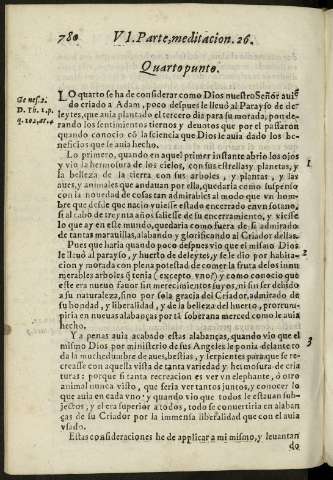 780 VI. Parte, meditacion. 26.
Quarto punto.
Genes. 2.
D. Th. 1. p.
q. 102. ar. 4
LO quarto se ha de considerar como Dios nuestro Señor auié
do criado a Adam, poco despues le lleuó al Parayso de de-
leytes, que auia plantado el tercero dia para su morada, pon-de
rando los sentimientos tiernos y deuotos que por el passaron
quando conocio có la sciencia que Dios le auia dado los be-
neficios que se auia hecho.
Lo primero, quando en aquel primer instante abrio los ojos
y vio la hermosura de los cielos, con sus estrellas y planetas, y
la belleza de la tierra con sus arboles, y plantas, y las
aues, y animales que andauan por ella, quedaria como suspenso
con la nouedad de cosas tan admirables al modo que vn hom-
bre que desde que nacio vuiesse estado encerrado en vn sotano,
si al cabo de treynta años saliesse de su encerramiento, y viesse
lo que ay en este mundo, quedaria como fuera de si admirado
de tantas marauillas, alabando, y glorificando al Criador dellas.
1
Pues que haria quando poco despues vio que el mismo Dios
le lleuó al parayso, y huerto de deleytes, y se le dio por habita-
cion y morada con plena potestad de comer la fruta de los innu
merables arboles q̃ tenia (excepto vno?) y como conocio que
este era nueuo fauor sin merecimientos suyos, ni sin ser debido
a su naturaleza, sino por sola gracia del Criador, admirado de
su bondad, y liberalidad, y de la belleza del huerto, prorrum-
piria en nueuas alabanças por tá soberana merced como le auia
hecho.
2
Y a penas auia acabado estas alabanças, quando vio que el
mismo Dios por ministerio de sus Angeles le ponia delante to
da la muchedumbre de aues, bestias, y serpientes para que se re-
creasse con aquella vista de tanta variedad y hermosura de cria
turas: porque si tanta recreacion es ver vn elephante, ó otro
animal nunca visto, que seria ver tantos juntos, y conocer lo
que auia en cada vno? y quando vio que todos le estauan sub-
jectos, y el era superior a todos, todo se conuertiria en alaban
ças de su Criador por la immensa liberalidad que con el auia
vsado.
3
Estas consideraciones he de applicar a mi mismo, y leuantan
do